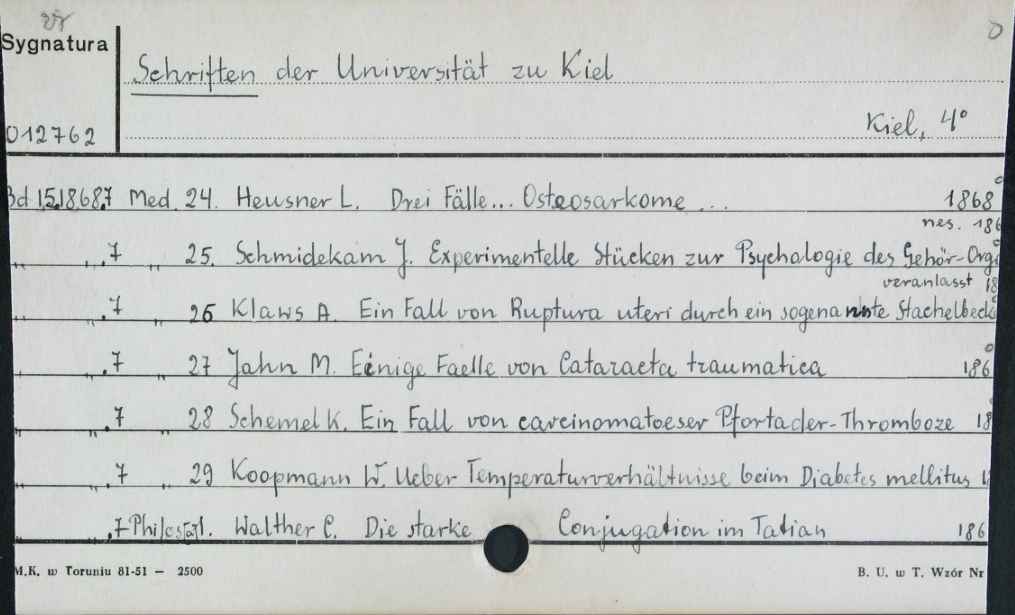 28
Sygnatura
Schriften der Universität zu Kiel
012762
Kiel, 4°
Bd 15.1868.7 Med. 24. Heusner L. Drei Fälle... Osteosarkome ... 1868
nes. 186
„ .7 „ 25. Schmidekam J. Experimentelle Stücken zur Psychologie des Gehör-Org
veranlasst 18
„ .7 „ 26 Klaws A. Ein Fall von Ruptura uteri durch ein sogenannte Stachelbeck
„ .7 „ 27 Jahn M. Einige Faelle von Cataracta traumatica 186
„ .7 „ 28 Schemel K. Ein Fall von carcinomatoeser Pfortader-Thromboze 18
„ 7 „ 29 Koopmann W. Ueber Temperaturverhältnisse beim Diabetes mellitus
.7 1. Walther C. Die starke Conjugation im Tatian 186
M.K. w Toruniu 81-51 — 2500
B. U. w T. Wzór Nr